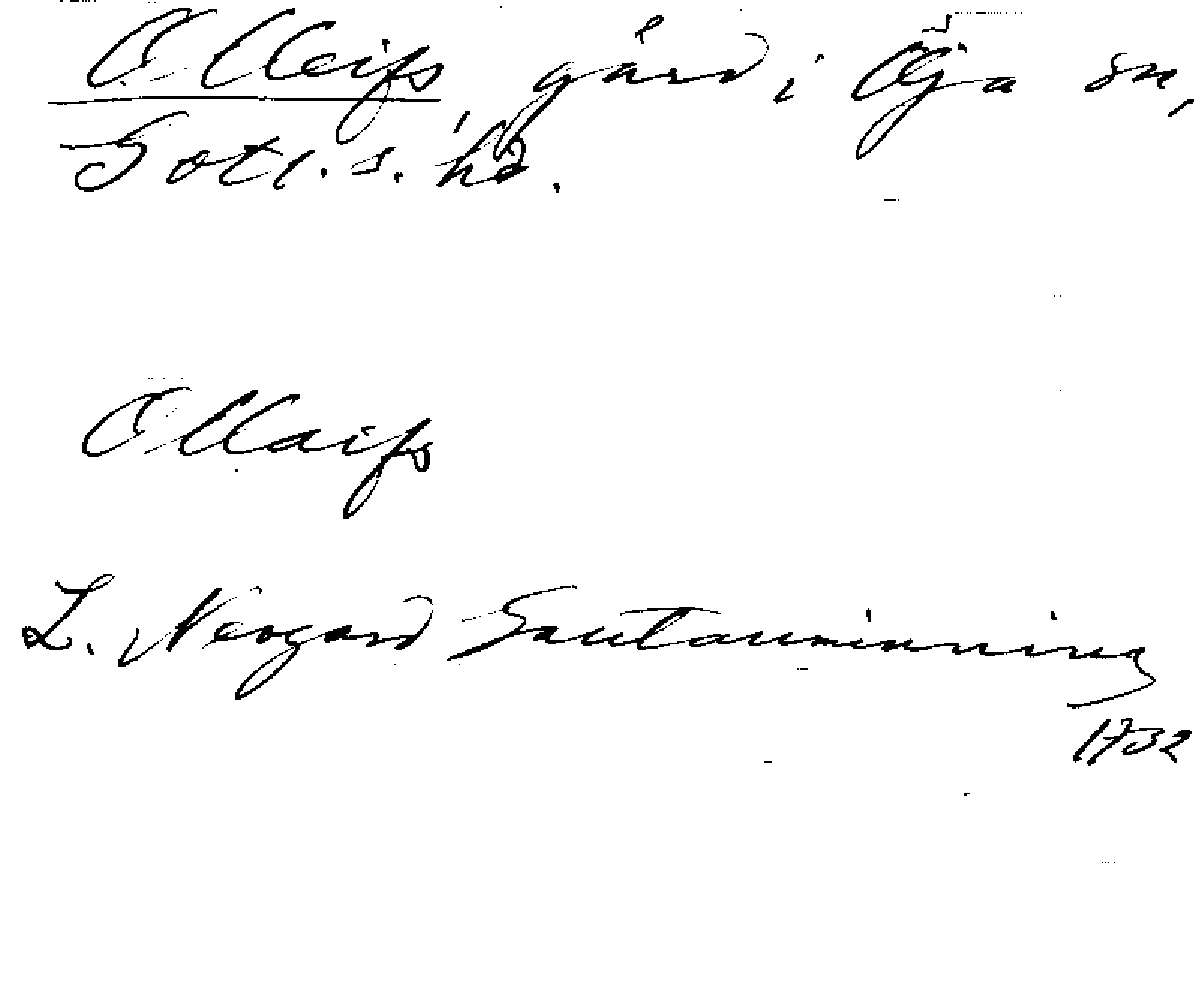 Olleifs, gård i Öja sn,
Gotl. s. hd.
Ollaifs
L. Neogard Gautauminning
1732